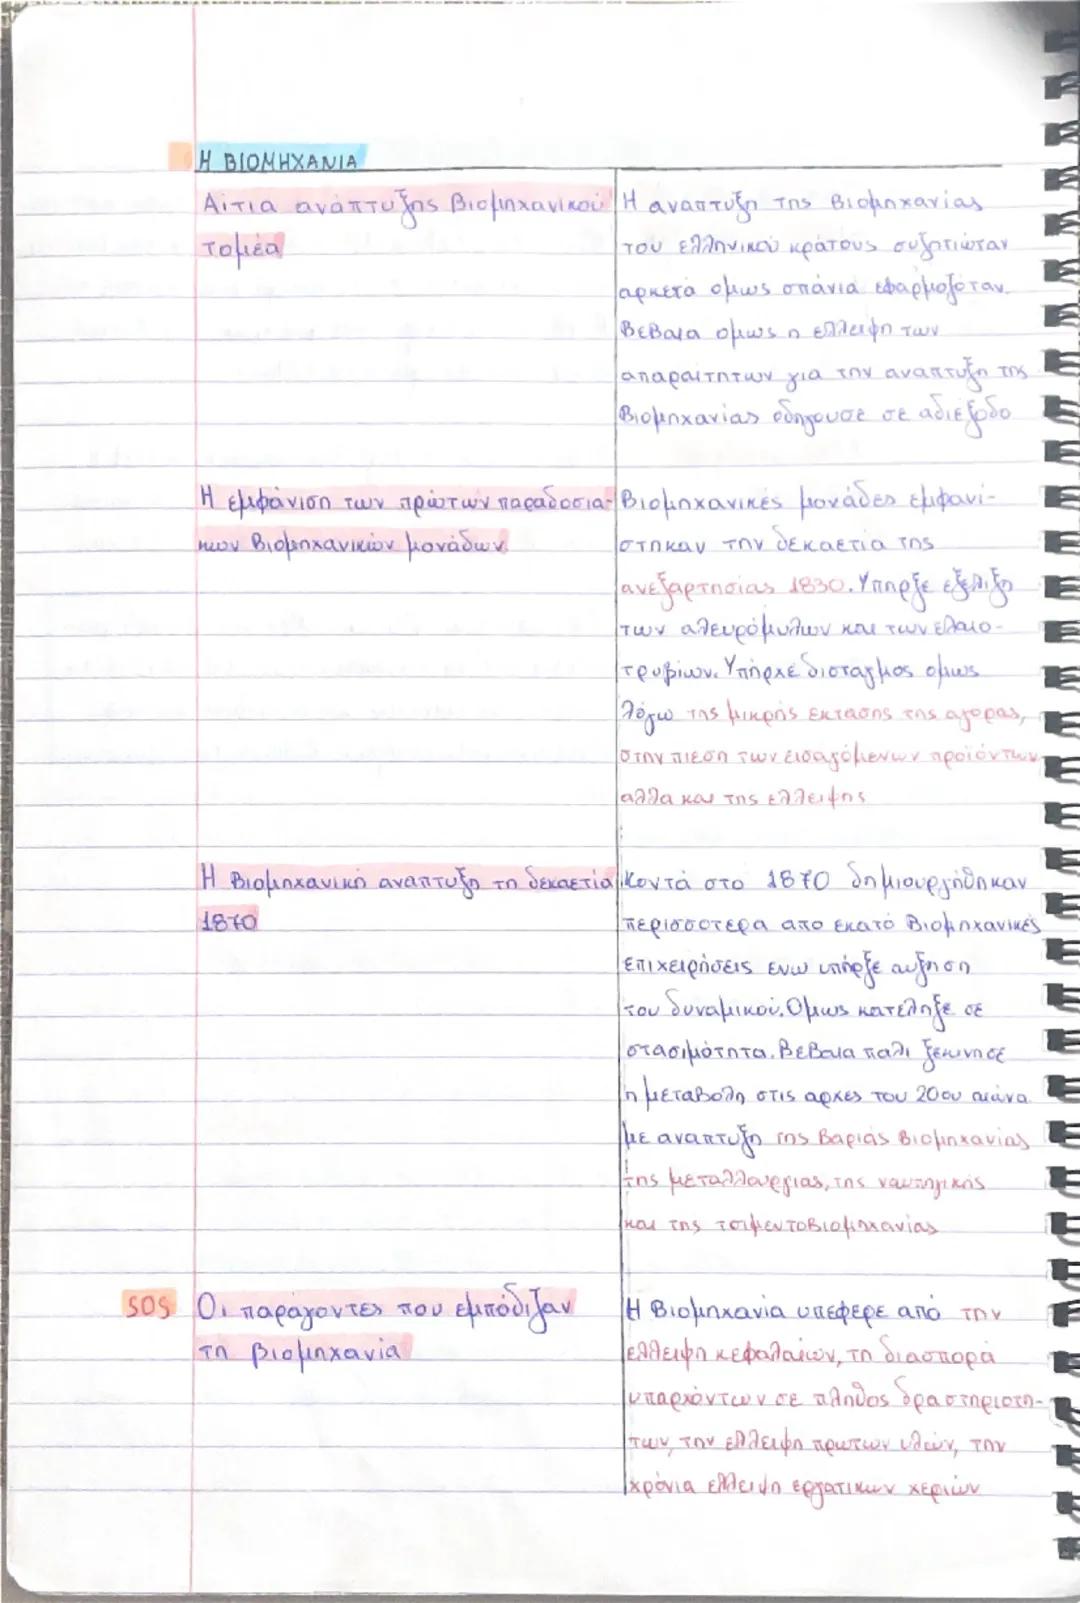 Η ΒΙΟΜΗΧΑΝΙΑ
Αίτια ανάπτυξης βιομηχανικού
τομέα
Η αναπτυξη της βιομηχανίας
του ελληνικού κράτους συζητιώταν
αρκετά όμως σπάνια εφαρμοζόταν.
Βεβαια ομως η ελλειψη των
απαραιτητων για την αναπτυξη της
βιομηχανίας οδηγουσε σε αδιέξοδο
Η εμφάνιση των πρώτων παραδοσια-
κων βιομηχανικών μονάδων
Βιομηχανικές μονάδες εμφανί-
στηκαν την δεκαετία της
ανεξαρτησίας 1830. Υπηρξε εξέλιξη
των αλευρόμυλων και των ελαιο-
τρυβίων. Υπήρχε δισταγμος ομως
λόγω της μικρής εκτασης της αγορας,
στην πιεση των εισαγόμενων προϊόντων
αλλα και της έλλειψης
Η βιομηχανική αναπτυξη τη δεκαετία
1870
Κοντά στο 1870 δημιουργήθηκαν
περισσοτερα απο εκατό βιομηχανικές
επιχειρήσεις ενω υπήρξε αυξηση
του δυναμικού. Ομως κατέληξε σε
στασιμότητα. Βεβαια παλι ξεκινησε
η μεταβολη στις αρχες του 20ου αιώνα
με αναπτυξη της βαριάς βιομηχανίας
της μεταλλουργίας, της ναυπηγικής
και της τσιμεντοβιομηχανίας
SOS Οι παράγοντες που εμπόδιζαν
τη βιομηχανία
Η βιομηχανία υπέφερε από την
έλλειψη κεφαλαίων, τη διασπορά
υπαρχόντων σε πλήθος δραστηριοτη-
των, την έλλειψη πρωτων υλών, την
χρόνια έλλειψη εργατικων χεριών